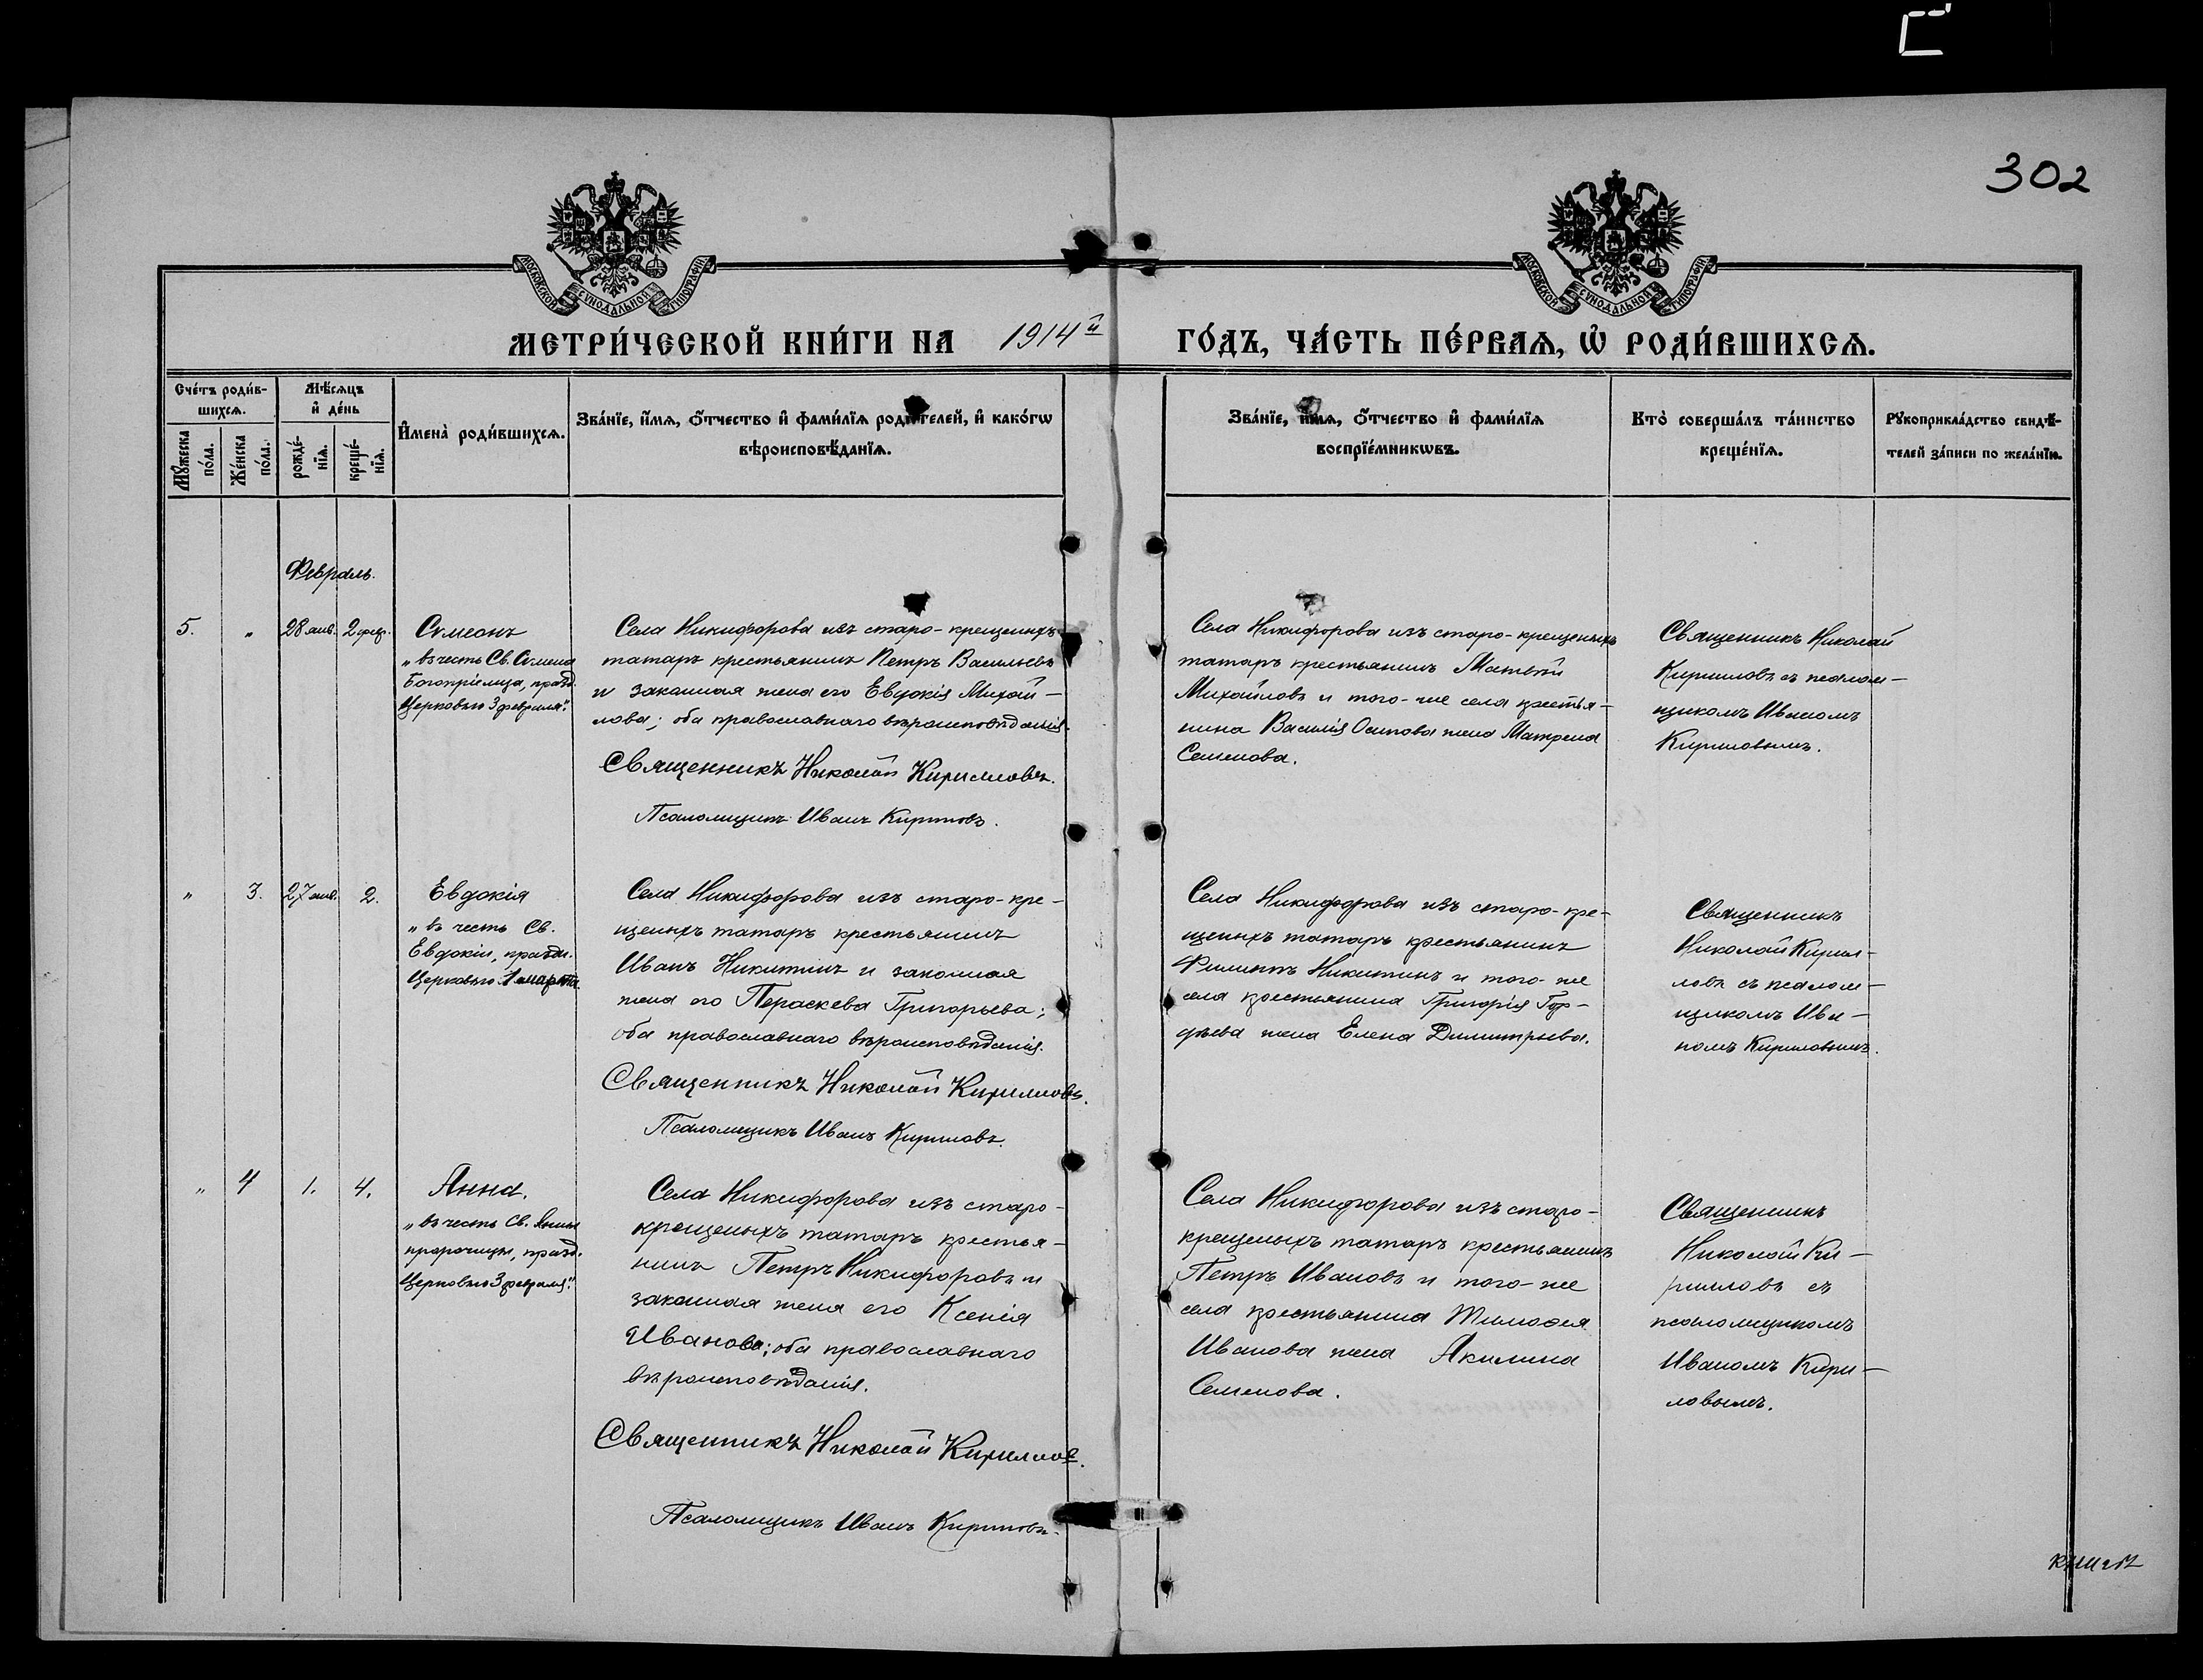 302
МОСКОВСКОЙ СУНОДАЛЬНОЙ ТИПОГРАФІИ
МОСКОВСКОЙ СУНОДАЛЬНОЙ ТИПОГРАФІИ
МЕТРИ́ЧЕСКОЙ КНИ́ГИ НА 1914й
ГО́ДЪ, ЧА́СТЬ ПЕ́РВАЯ, Ѡ РОДИ́ВШИХСЯ.
Сче́тъ роди́в-
шихся.
Мꙋ́жеска по́ла.
Же́нска по́ла.
Мѣ́сяцъ
и҆ де́нь
рожде́-
нїя.
креще́-
нїя.
И҆мена̀ роди́вшихся.
Зва́нїе, и҆́мя, ѻ҆́тчество и҆ фами́лїя роди́телей, и҆ како́гѡ
вѣроисповѣ́данїя.
Зва́нїе, и҆́мя, ѻ҆́тчество и҆ фами́лїя
воспрїе́мникѡвъ.
Кто̀ соверша́лъ та́инство
креще́нїя.
Рꙋкоприкла́дство свидѣ́-
телей за́писи по жела́нїю.
Февраль.
5. " 28 янв. 2 фев.
Сѵмеонъ
„въ честь Св. Сѵмеона
Богопріемца, празд.
Церковью 3 февраля".
Села Никифорова изъ старо-крещеныхъ
татаръ крестьянинъ Петръ Васильевъ
и законная жена его Евдокія Михай-
лова; оба православнаго вѣроисповѣданія.
Священникъ Николай Кирилловъ.
Псаломщикъ Иванъ Кириловъ.
Села Никифорова изъ старо-крещеныхъ
татаръ крестьянинъ Матвѣй
Михайловъ и того-же села крестья-
нина Василія Осипова жена Матрена
Семенова.
Священникъ Николай
Кирилловъ съ псалом-
щикомъ Иваномъ
Кириловымъ.
" 3. 27 янв. 2.
Евдокія
„въ честь Св.
Евдокіи, праздн.
Церковью 1 марта
Села Никифорова изъ старо-кре-
щеныхъ татаръ крестьянинъ
Иванъ Никитинъ и законная
жена его Параскева Григорьева;
оба православнаго вѣроисповѣданія.
Священникъ Николай Кирилловъ.
Псаломщикъ Иванъ Кириловъ.
Села Никифорова изъ старо-кре-
щеныхъ татаръ крестьянинъ
Филиппъ Никитинъ и того-же
села крестьянина Григорія Гор-
дѣева жена Елена Димитріева.
Священникъ
Николай Кирил-
ловъ съ псалом-
щикомъ Ива-
номъ Кириловымъ.
" 4 1. 4.
Анна.
„въ честь Св. Анны
пророчицы, празд.
Церковью 3 февраля".
Села Никифорова изъ старо-
крещеныхъ татаръ крестья-
нинъ Петръ Никифоровъ и
законная жена его Ксенія
Иванова; оба православнаго
вѣроисповѣданія.
Священникъ Николай Кирилловъ.
Псаломщикъ Иванъ Кириловъ.
Села Никифорова изъ старо-
крещеныхъ татаръ крестьянинъ
Петръ Ивановъ и того-же
села крестьянина Тимоѳея
Иванова жена Акилина
Семенова.
Священникъ
Николай Ки-
рилловъ съ
псаломщикомъ
Иваномъ Кири-
ловымъ.